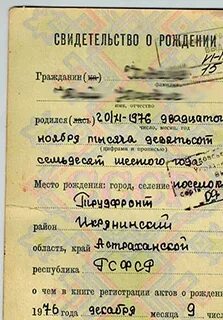 СВИДЕТЕЛЬСТВО О РОЖДЕНИИ
Гражданин (ка)
фамилия
имя, отчество
родился (лась) 20/XI-1976 двадцатого
число, месяц, год
ноября тысяча девятьсот
(цифрами и прописью)
семьдесят шестого года
Место рождения: город, селение поселок
Трудфронт
район Икрянинский
область, край Астраханской
республика РСФСР
о чем в книге регистрации актов о рождени
1976 года декабря месяца 9 числа